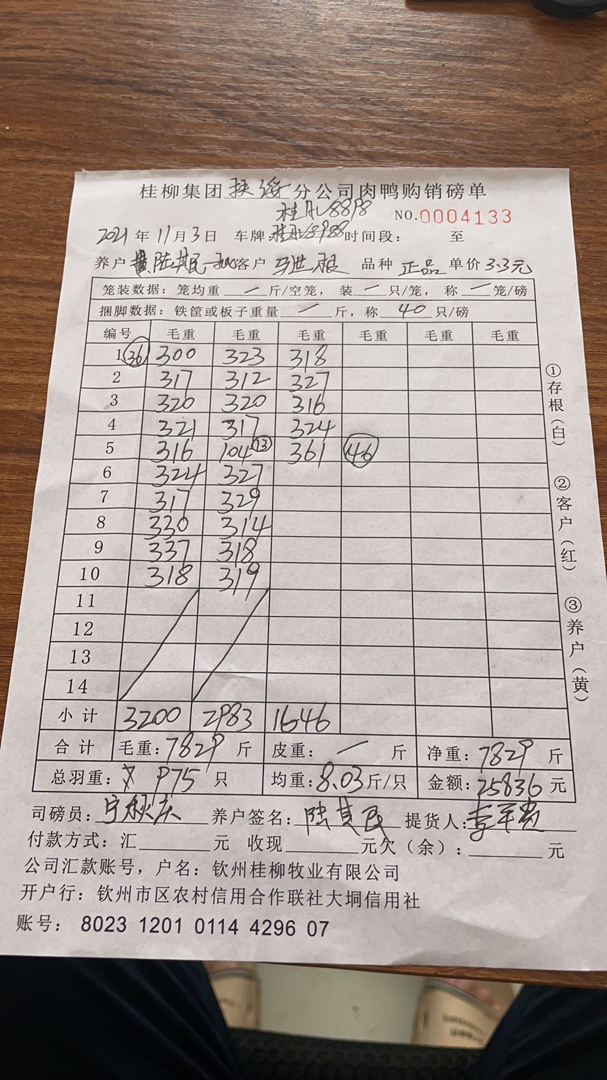 桂柳集团 扶绥 分公司肉鸭购销磅单
桂A L8898
NO.0004133
2021年11月3日 车牌: 时间段: 至
养户 陆其民 客户 马世根 品种 正品 单价3.3元
笼装数据:笼均重 — 斤/空笼,装 — 只/笼,称 — 笼/磅
捆脚数据:铁筐或板子重量 — 斤,称 40 只/磅
编号 毛重 毛重 毛重 毛重 毛重 毛重
1 (36) 300 323 318
2 317 312 327
3 320 320 316
4 321 317 324
5 316 104 (13) 361 (46)
6 324 327
7 317 329
8 330 314
9 337 318
10 318 319
11
12
13
14
小计 3200 2983 1646
合计 毛重:7829 斤 皮重: — 斤 净重:7829 斤
总羽重: 975 只 均重:8.03斤/只 金额:25836元
司磅员: 宁秋庆 养户签名:陆其民 提货人:
付款方式:汇 元 收现 元欠(余): 元
公司汇款账号,户名:钦州桂柳牧业有限公司
开户行:钦州市区农村信用合作联社大垌信用社
账号: 8023 1201 0114 4296 07
①存根(白)
②客户(红)
③养户(黄)